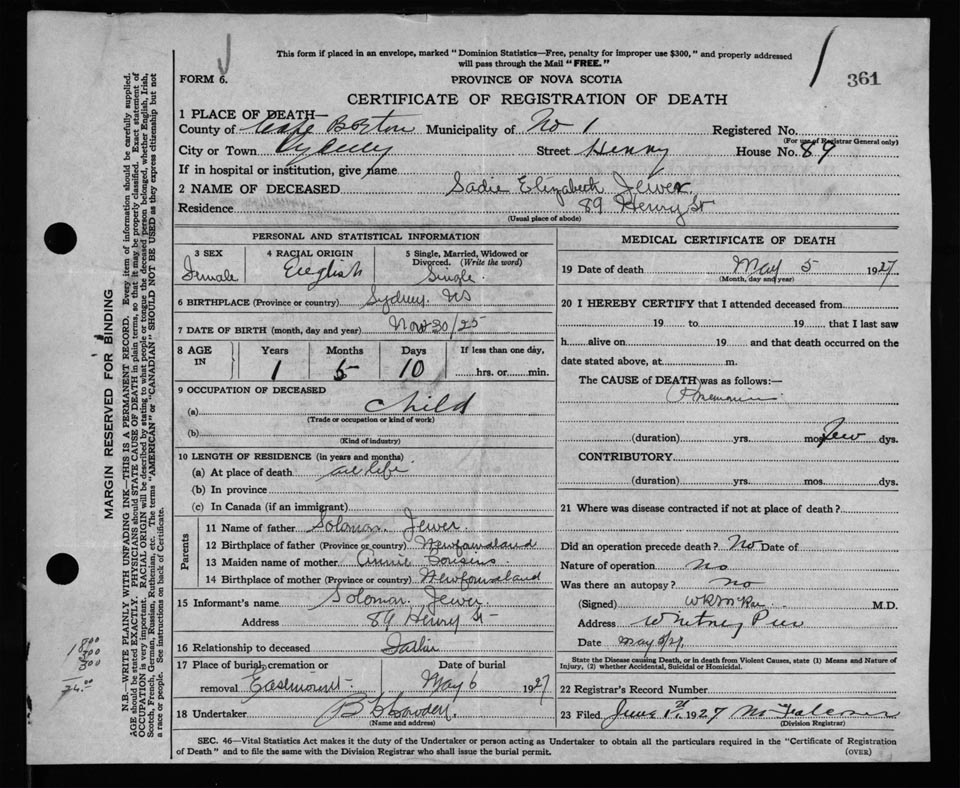 This form if placed in an envelope, marked "Dominion Statistics—Free, penalty for improper use $300," and properly addressed
will pass through the Mail "FREE."
361
FORM 6.
PROVINCE OF NOVA SCOTIA
CERTIFICATE OF REGISTRATION OF DEATH
1 PLACE OF DEATH—
County of Cape Breton Municipality of No 1 Registered No.
(For use of Registrar General only)
City or Town Sydney Street Henry House No. 89
If in hospital or institution, give name
2 NAME OF DECEASED Sadie Elizabeth Jewer
Residence 89 Henry St
(Usual place of abode)
PERSONAL AND STATISTICAL INFORMATION
3 SEX 4 RACIAL ORIGIN 5 Single, Married, Widowed or
Divorced. (Write the word)
Female English Single
6 BIRTHPLACE (Province or country) Sydney. NS
7 DATE OF BIRTH (month, day and year) Nov 30/25
8 AGE IN Years Months Days If less than one day,
1 5 10 hrs. or min.
9 OCCUPATION OF DECEASED
(a) Child
(Trade or occupation or kind of work)
(b)
(Kind of industry)
10 LENGTH OF RESIDENCE (in years and months)
(a) At place of death all life
(b) In province
(c) In Canada (if an immigrant)
Parents
11 Name of father Solomon Jewer
12 Birthplace of father (Province or country) Newfoundland
13 Maiden name of mother Annie
14 Birthplace of mother (Province or country) Newfoundland
15 Informant's name Solomon Jewer
Address 89 Henry St
16 Relationship to deceased Father
17 Place of burial, cremation or Date of burial
removal Eastmount May 6 1927
18 Undertaker
(Name and address)
MEDICAL CERTIFICATE OF DEATH
19 Date of death May 5 1927
(Month, day and year)
20 I HEREBY CERTIFY that I attended deceased from
19 to 19 that I last saw
h alive on 19 and that death occurred on the
date stated above, at m.
The CAUSE of DEATH was as follows:—
Pneumonia
(duration) yrs. mos. few dys.
CONTRIBUTORY.
(duration) yrs. mos. dys.
21 Where was disease contracted if not at place of death?
Did an operation precede death? No Date of
Nature of operation No
Was there an autopsy? No
(Signed) M.D.
Address Whitney Pier
Date May
State the Disease causing Death, or in death from Violent Causes, state (1) Means and Nature of
Injury, (2) whether Accidental, Suicidal or Homicidal.
22 Registrar's Record Number
23 Filed June 1st, 1927
(Division Registrar)
SEC. 46—Vital Statistics Act makes it the duty of the Undertaker or person acting as Undertaker to obtain all the particulars required in the "Certificate of Registration
of Death" and to file the same with the Division Registrar who shall issue the burial permit.
(OVER)
MARGIN RESERVED FOR BINDING
N.B.—WRITE PLAINLY WITH UNFADING INK—THIS IS A PERMANENT RECORD. Every item of information should be carefully supplied.
AGE should be stated EXACTLY. PHYSICIANS should STATE CAUSE OF DEATH in plain terms, so that it may be properly classified. Exact statement of
OCCUPATION is very important. RACIAL ORIGIN will be described by stating to what people or tongue the deceased person belonged, whether English, Irish,
Scotch, French, German, Russian, Ruthenian, etc. The terms "AMERICAN" or "CANADIAN" SHOULD NOT BE USED as they express citizenship but not
a race or people. See instructions on back of Certificate.